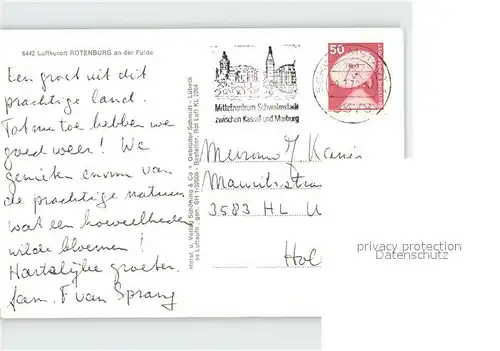 6442 Luftkurort ROTENBURG an der Fulda
Een groet uit dit
prachtige land.
Tot nu toe hebben we
goed weer! We
genieten enorm van
de prachtige natuur
wat een hoeveelheden
wilde bloemen!
Hartelijke groeten.
fam. F van Sprang
Mittelzentrum Schwalmstadt
zwischen Kassel und Marburg
50
Horst. u. Verlag Schöning & Co + Gebrüder Schmidt - Lübeck
Mauritsstra
3583 HL U
Hol
privacy protection
Datenschutz